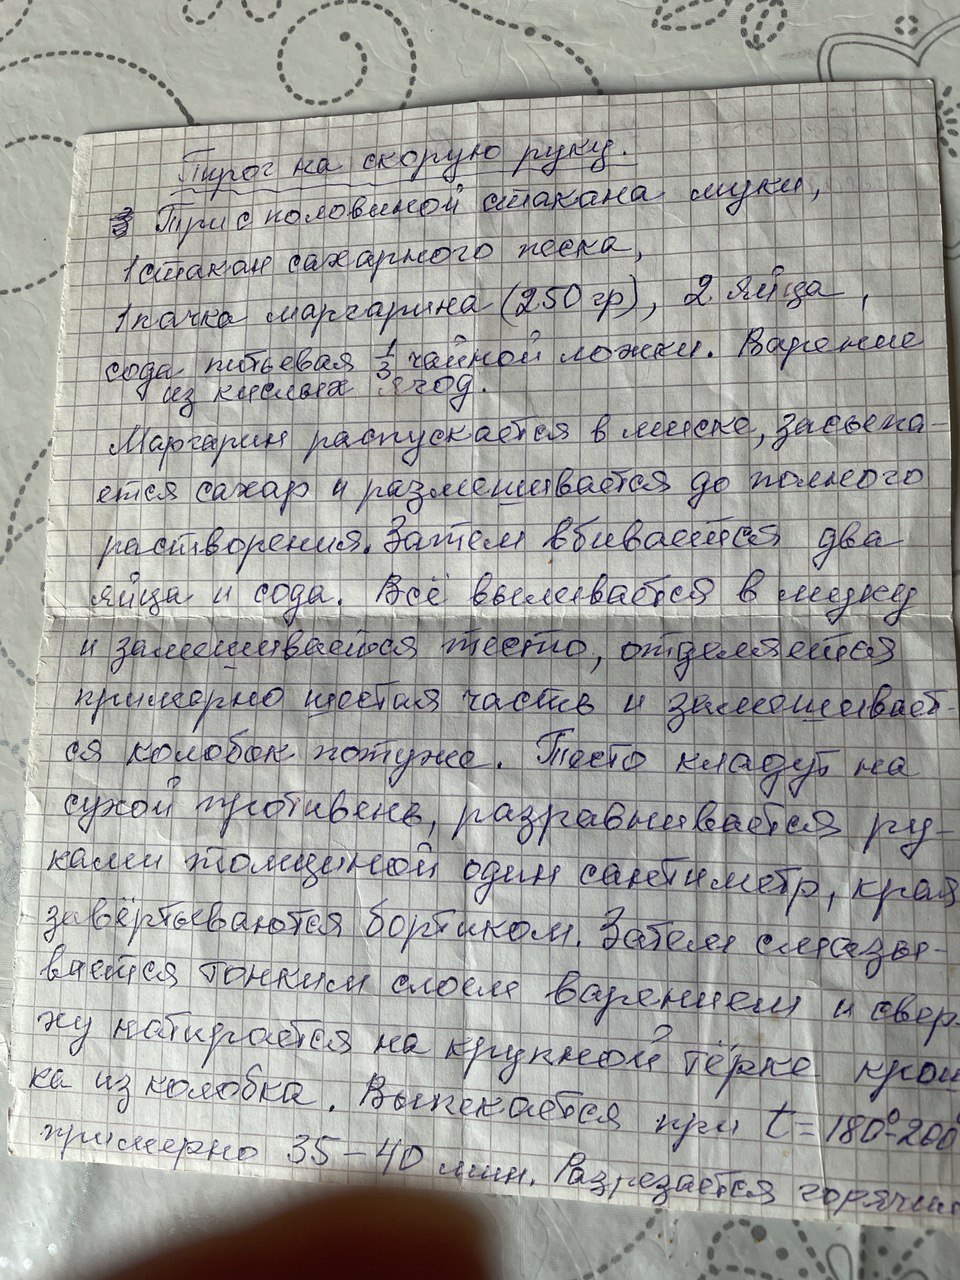 Пирог на скорую руку.
Три с половиной стакана муки,
1 стакан сахарного песка,
1 пачка маргарина (250 гр), 2 яйца,
сода питьевая 1/3 чайной ложки. Варение
из кислых ягод.
Маргарин распускается в миске, засыпа-
ется сахар и размешивается до полного
растворения. Затем вбивается два
яйца и сода. Всё выливается в муку
и замешивается тесто, отделяется
примерно шестая часть и замешивает-
ся колобок потуже. Тесто кладут на
сухой противень, разравнивается ру-
ками толщиной один сантиметр, края
завёртываются бортиком. Затем смазы-
вается тонким слоем варением и свер-
ху натирается на крупной тёрке крош
ка из колобка. Выпекается при t = 180°-200°
примерно 35-40 мин. Разрезается горячим